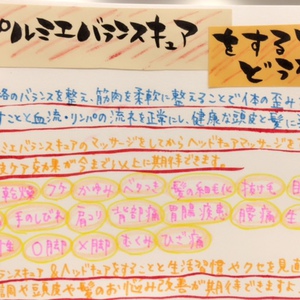 プルミエバランスキュア
をする
どう
格のバランスを整え、筋肉を柔軟に整えることで体の歪み
すことと血流・リンパの流れを正常にし、健康な頭皮と髪に
ミエバランスキュアのマッサージをしてからヘッドキュアマッサージを
ケア効果が今まで以上に期待できます。
乾燥 フケ かゆみ べたつき 髪の細毛化 抜け毛
手のしびれ 肩コリ 背部痛 胃腸疾患 腰痛 生
O脚 X脚 むくみ ひざ痛
ランスキュア&ヘッドキュアをすることと生活習慣やクセを見直
調や頭皮や髪のお悩み改善が期待できます